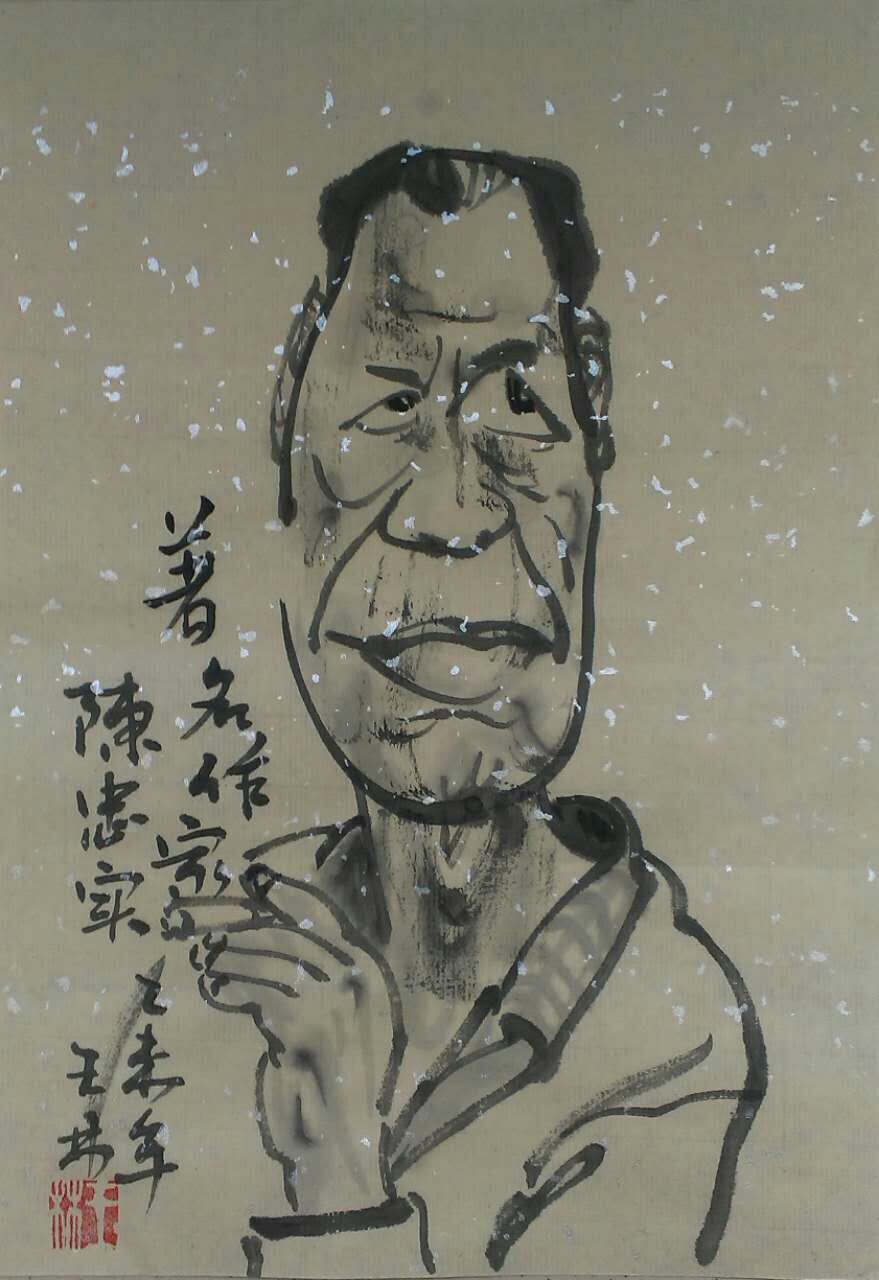 著名作家
陳忠实
乙未年
王林